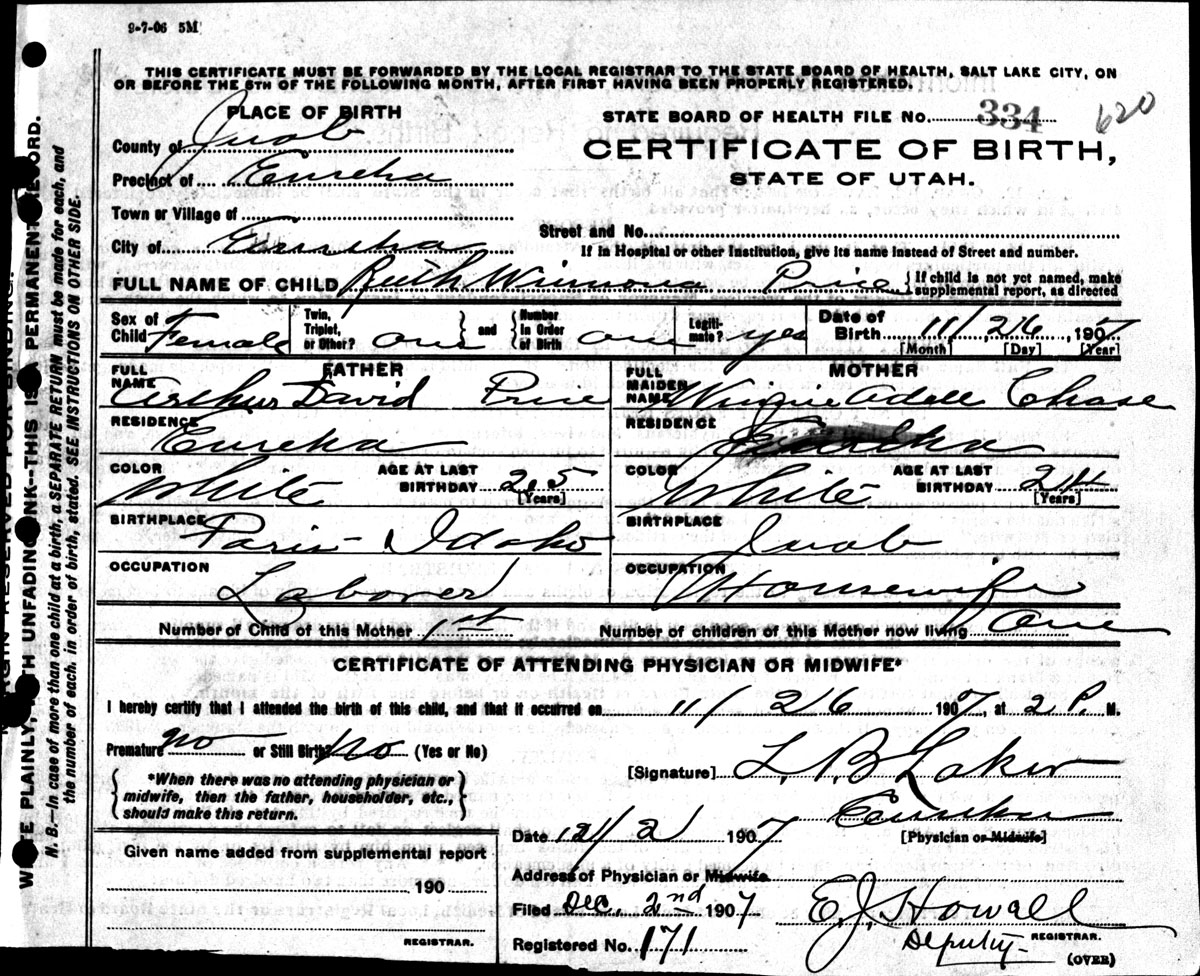 9-7-06 5M
THIS CERTIFICATE MUST BE FORWARDED BY THE LOCAL REGISTRAR TO THE STATE BOARD OF HEALTH, SALT LAKE CITY, ON
OR BEFORE THE 5TH OF THE FOLLOWING MONTH, AFTER FIRST HAVING BEEN PROPERLY REGISTERED.
PLACE OF BIRTH
County of Juab
Precinct of Eureka
Town or Village of
City of Eureka
STATE BOARD OF HEALTH FILE No. 334 620
CERTIFICATE OF BIRTH,
STATE OF UTAH.
Street and No.
If in Hospital or other Institution, give its name instead of Street and number.
FULL NAME OF CHILD Ruth Winnona Price {If child is not yet named, make
supplemental report, as directed
Sex of Child Female Twin, Triplet, or Other? one and Number in Order of Birth one Legitimate? yes Date of Birth 11/26, 1907
[Month] [Day] [Year]
FATHER
FULL NAME Arthur David Price
RESIDENCE Eureka
COLOR White AGE AT LAST BIRTHDAY 25
[Years]
BIRTHPLACE Paris Idaho
OCCUPATION Laborer
MOTHER
FULL MAIDEN NAME Adell Chase
RESIDENCE Eureka
COLOR White AGE AT LAST BIRTHDAY 24
[Years]
BIRTHPLACE Juab
OCCUPATION Housewife
Number of Child of this Mother 1th Number of children of this Mother now living One
CERTIFICATE OF ATTENDING PHYSICIAN OR MIDWIFE*
I hereby certify that I attended the birth of this child, and that it occurred on 11/26 1907, at 2 P. M.
Premature no or Still Birth? no (Yes or No)
{*When there was no attending physician or
midwife, then the father, householder, etc.,
should make this return.}
[Signature] L. B. Laker
Eureka
Date 12/2 1907 [Physician or Midwife]
Address of Physician or Midwife
Given name added from supplemental report
190
REGISTRAR.
Filed Dec. 2nd 1907 E. J. Howell
Deputy REGISTRAR.
Registered No. 171
(OVER)
MARGIN RESERVED FOR BINDING.
WRITE PLAINLY, WITH UNFADING INK—THIS IS A PERMANENT RECORD.
N. B.—In case of more than one child at a birth, a SEPARATE RETURN must be made for each, and
the number of each, in order of birth, stated. SEE INSTRUCTIONS ON OTHER SIDE.